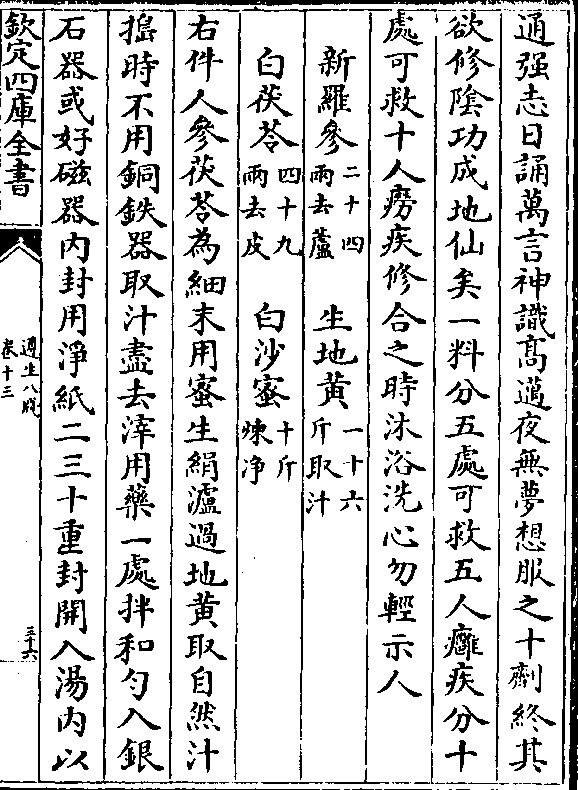 通强志日誦萬言神識髙邁夜無夢想服之十劑終其
欲修隂功成地仙矣一料分五處可救五人癰疾分十
處可救十人癆疾修合之時沐浴洗心勿輕示人
新羅參二十四兩去蘆 生地黄一十六斤取汁
白茯苓四十九兩去皮 白沙蜜十斤煉净
右件人參茯苓為細末用蜜生絹濾過地黄取自然汁
搗時不用銅鉄器取汁盡去滓用藥一處拌和勻入銀
石器或好磁器内封用淨紙二三十重封開入湯内以
欽定四庫全書
遵生八牋
卷十三
三十六